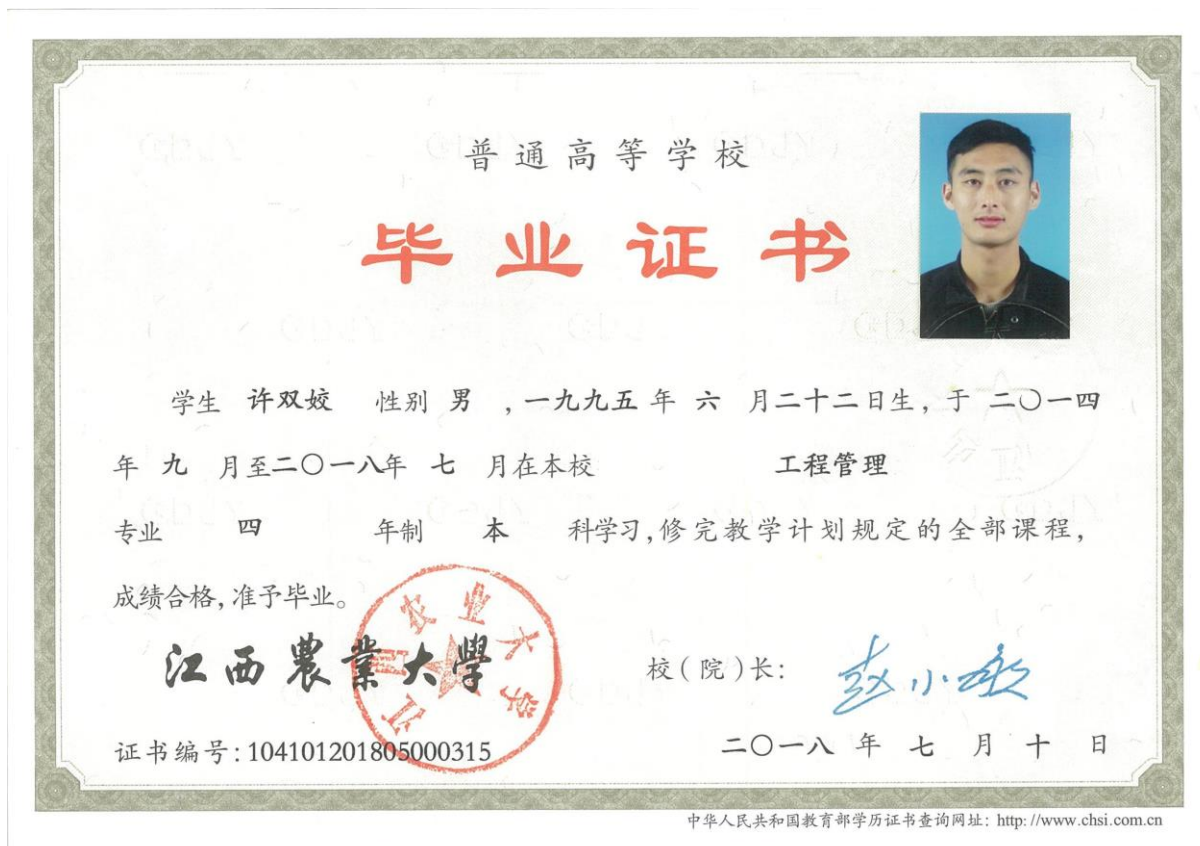 普通高等学校
毕业证书
学生 许双姣 性别 男 ，一九九五 年 六 月二十二日生，于 二〇一四
年 九 月至二〇一八年 七 月在本校 工程管理
专业 四 年制 本 科学习，修完教学计划规定的全部课程，
成绩合格，准予毕业。
江西農業大學
江西农业大学
校（院）长：赵小敏
证书编号：104101201805000315
二〇一八 年 七 月 十 日
中华人民共和国教育部学历证书查询网址：http://www.chsi.com.cn